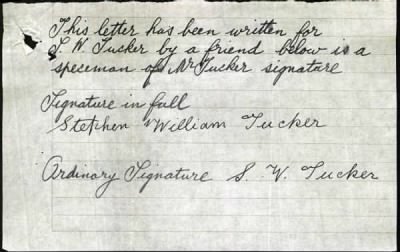 This letter has been written for
S. W. Tucker by a friend below is a
speceman of Mr Tucker signature
Signature in full
Stephen William Tucker
Ordinary Signature S. W. Tucker